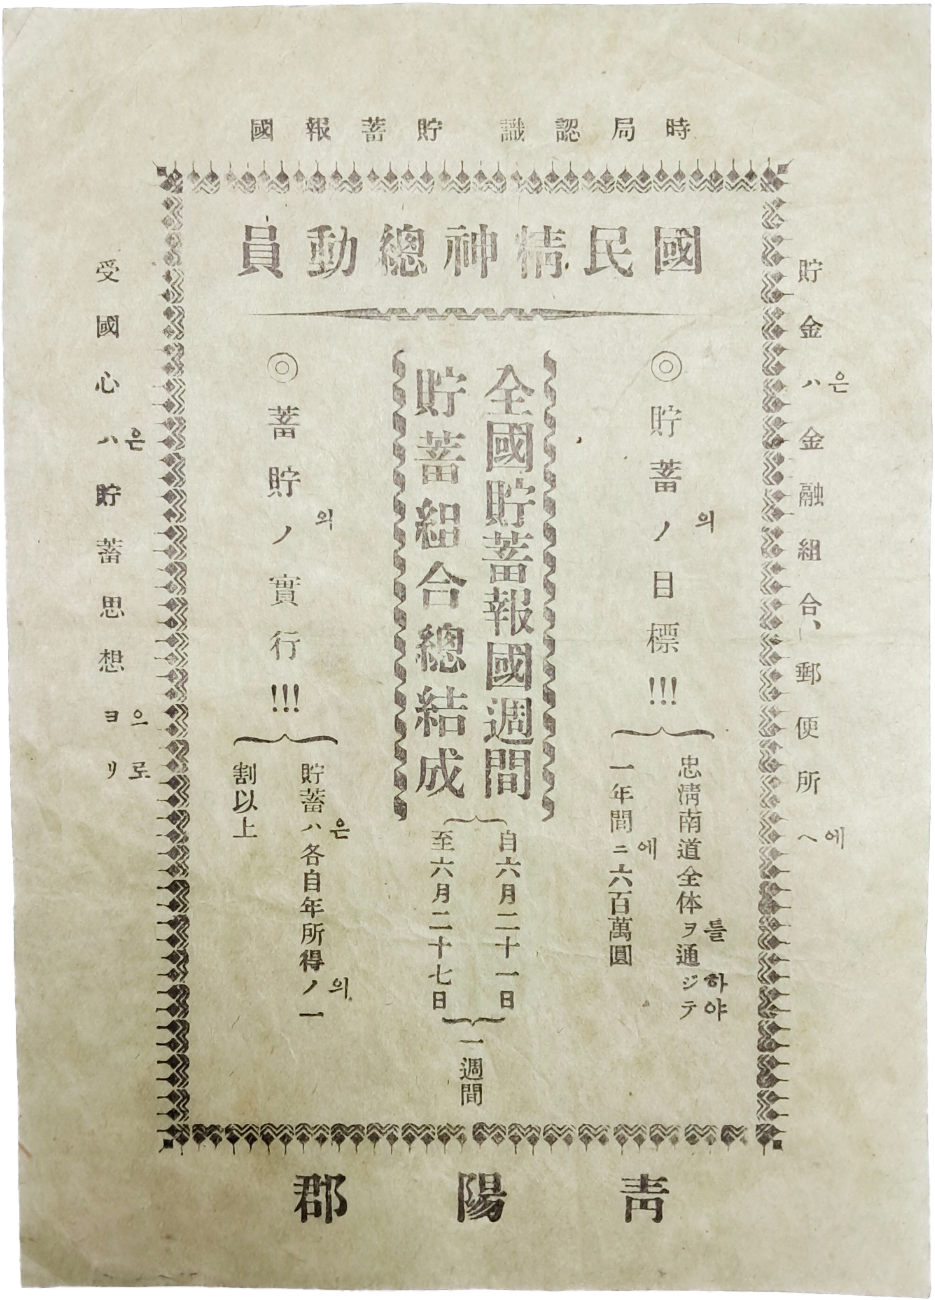 時局認識 貯蓄報國
國民精神總動員
貯金ハ은金融組合、郵便所ヘ에
◎貯蓄ノ의目標!!!
忠淸南道全体ヲ를通ジテ하야
一年間ニ에六百萬圓
全國貯蓄報國週間
貯蓄組合總結成
自六月二十一日
至六月二十七日
一週間
◎蓄貯ノ의實行!!!
貯蓄ハ은各自年所得ノ의一
割以上
受國心ハ은貯蓄思想ヨリ으로
靑陽郡